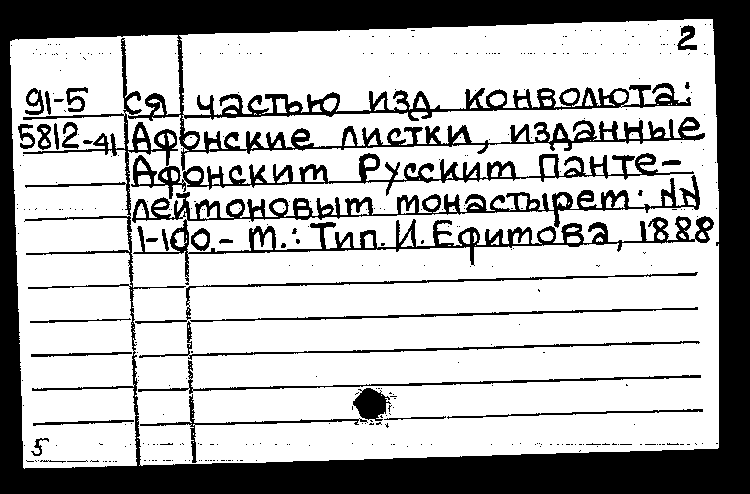 2
91-5 ся частью изд. конволюта:
5812-41 Афонские листки, изданные
Афонским Русским Панте-
леймоновым монастырем: NN
1-100. - М.: Тип. И. Ефимова, 1888.
5